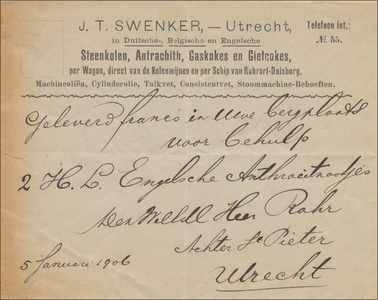 J. T. SWENKER, — Utrecht,
Telefoon Int.:
№. 55.
in Duitsche-, Belgische en Engelsche
Steenkolen, Antrachith, Gaskokes en Gietcokes,
per Wagon, direct van de Kolenmijnen en per Schip van Ruhrort-Duisburg.
Machineoliën, Cylinderolie, Talkvet, Consistentvet, Stoommachine-Behoeften.
Geleverd franco in Uwe bergplaats
voor behulp
2 H. L. Engelsche Anthracietnootjes
Den Heer Rahr
Achter St Pieter
5 Januari 1906
Utrecht